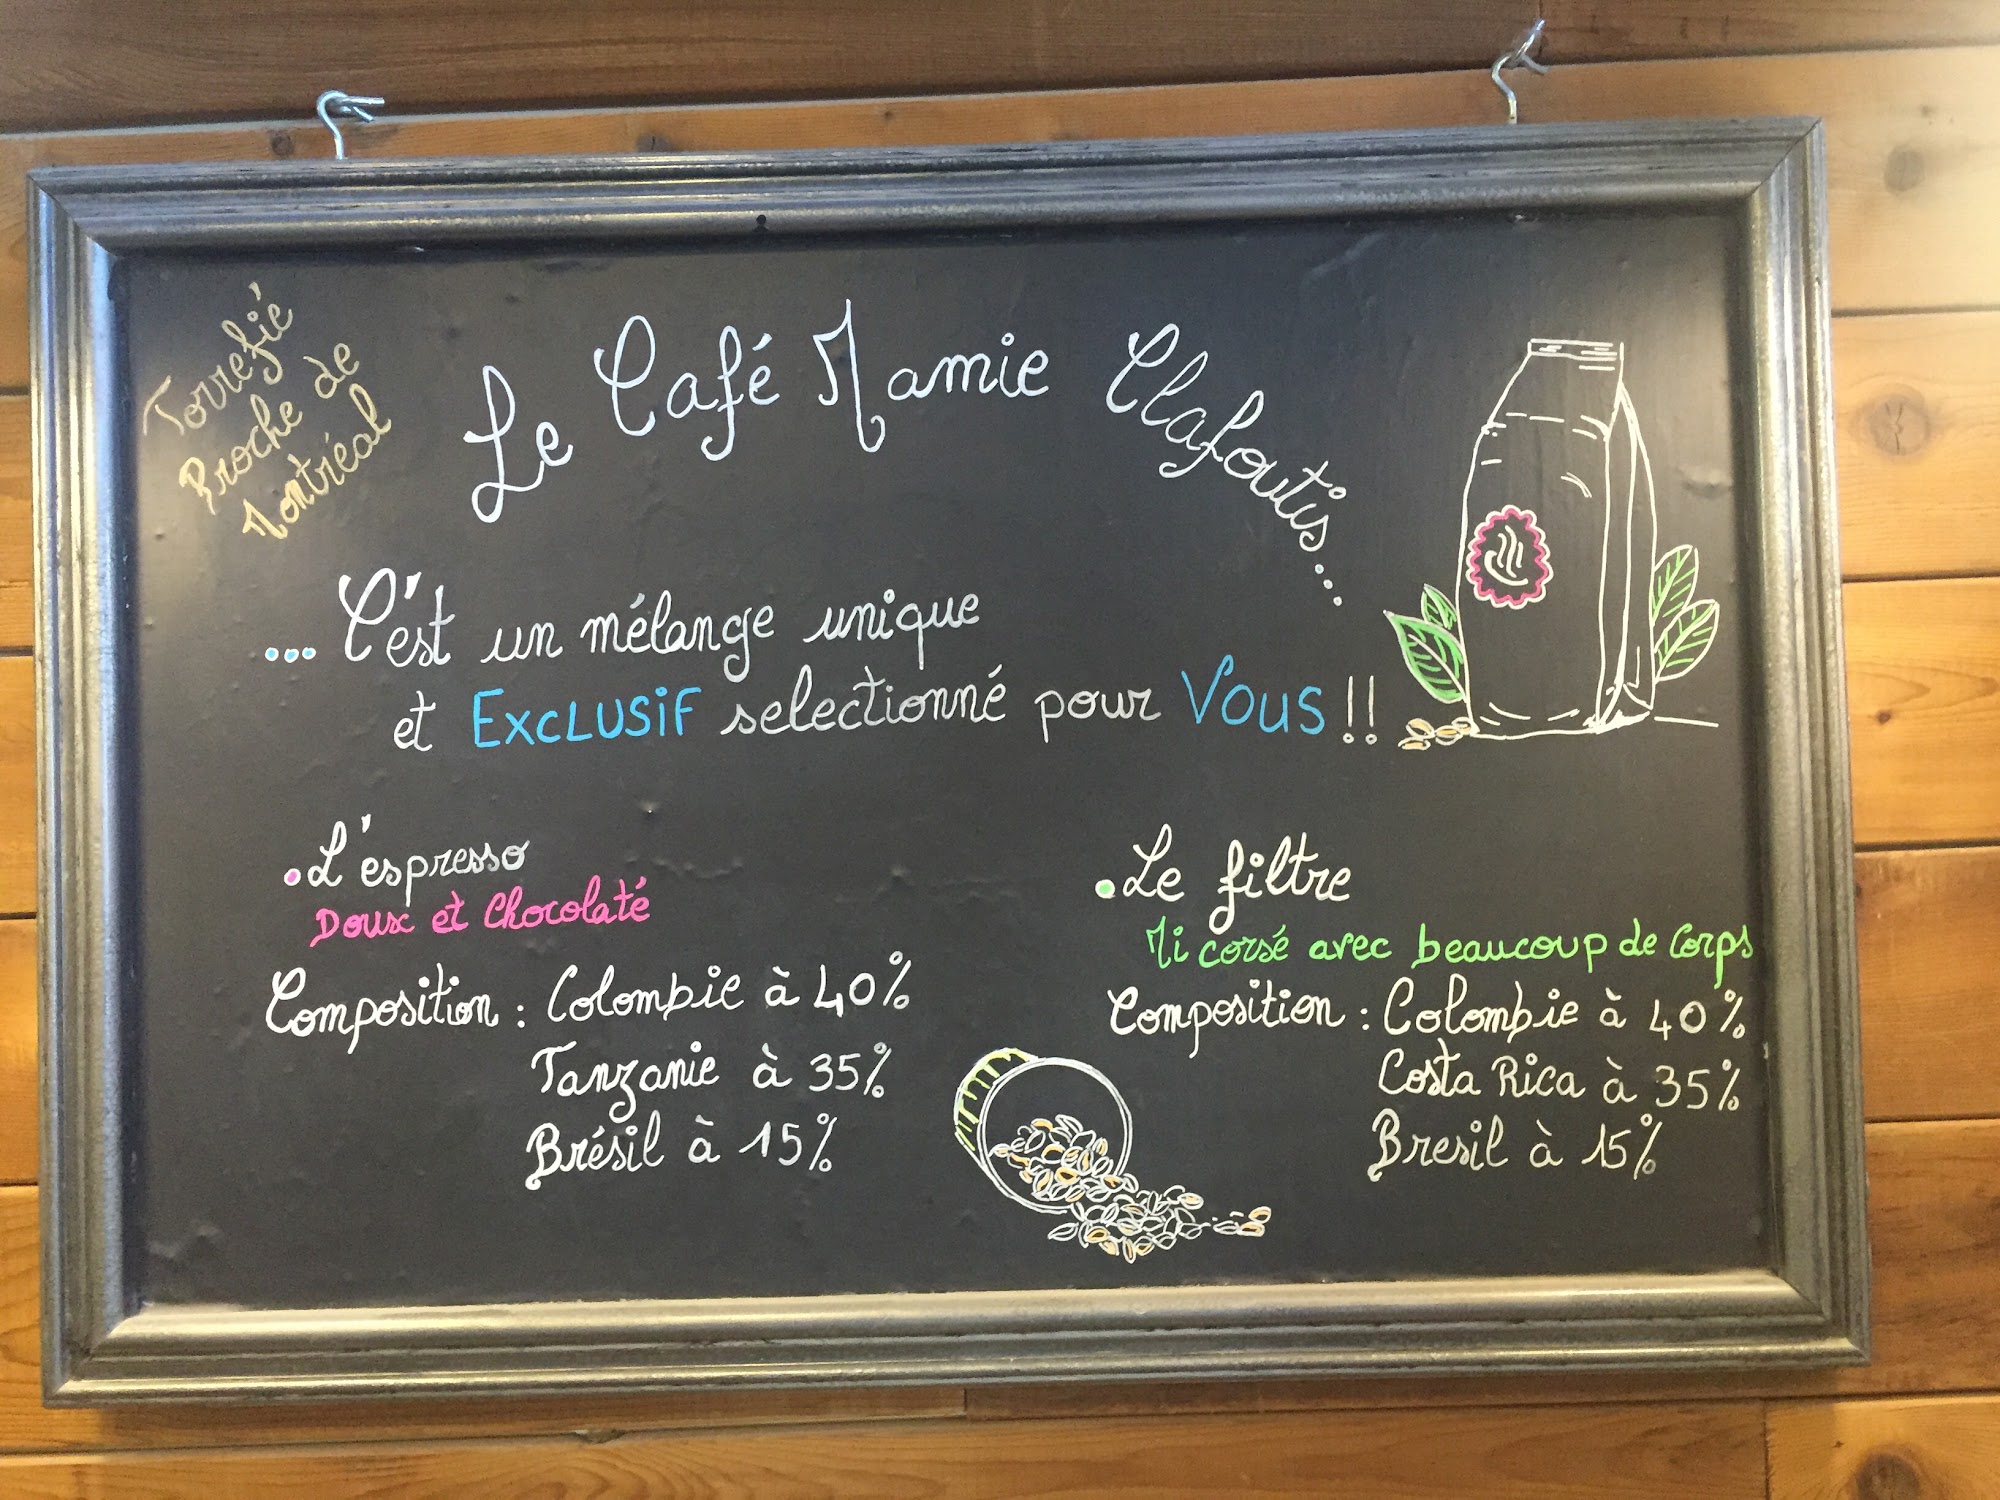 Torrefié
Proche de
Montréal
Le Café Mamie Clafoutis...
... C'est un mélange unique
et EXCLUSIF selectionné pour Vous!!
• L'espresso
Doux et Chocolaté
Composition : Colombie à 40%
Tanzanie à 35%
Brésil à 15%
• Le filtre
Mi corsé avec beaucoup de Corps
Composition : Colombie à 40%
Costa Rica à 35%
Bresil à 15%